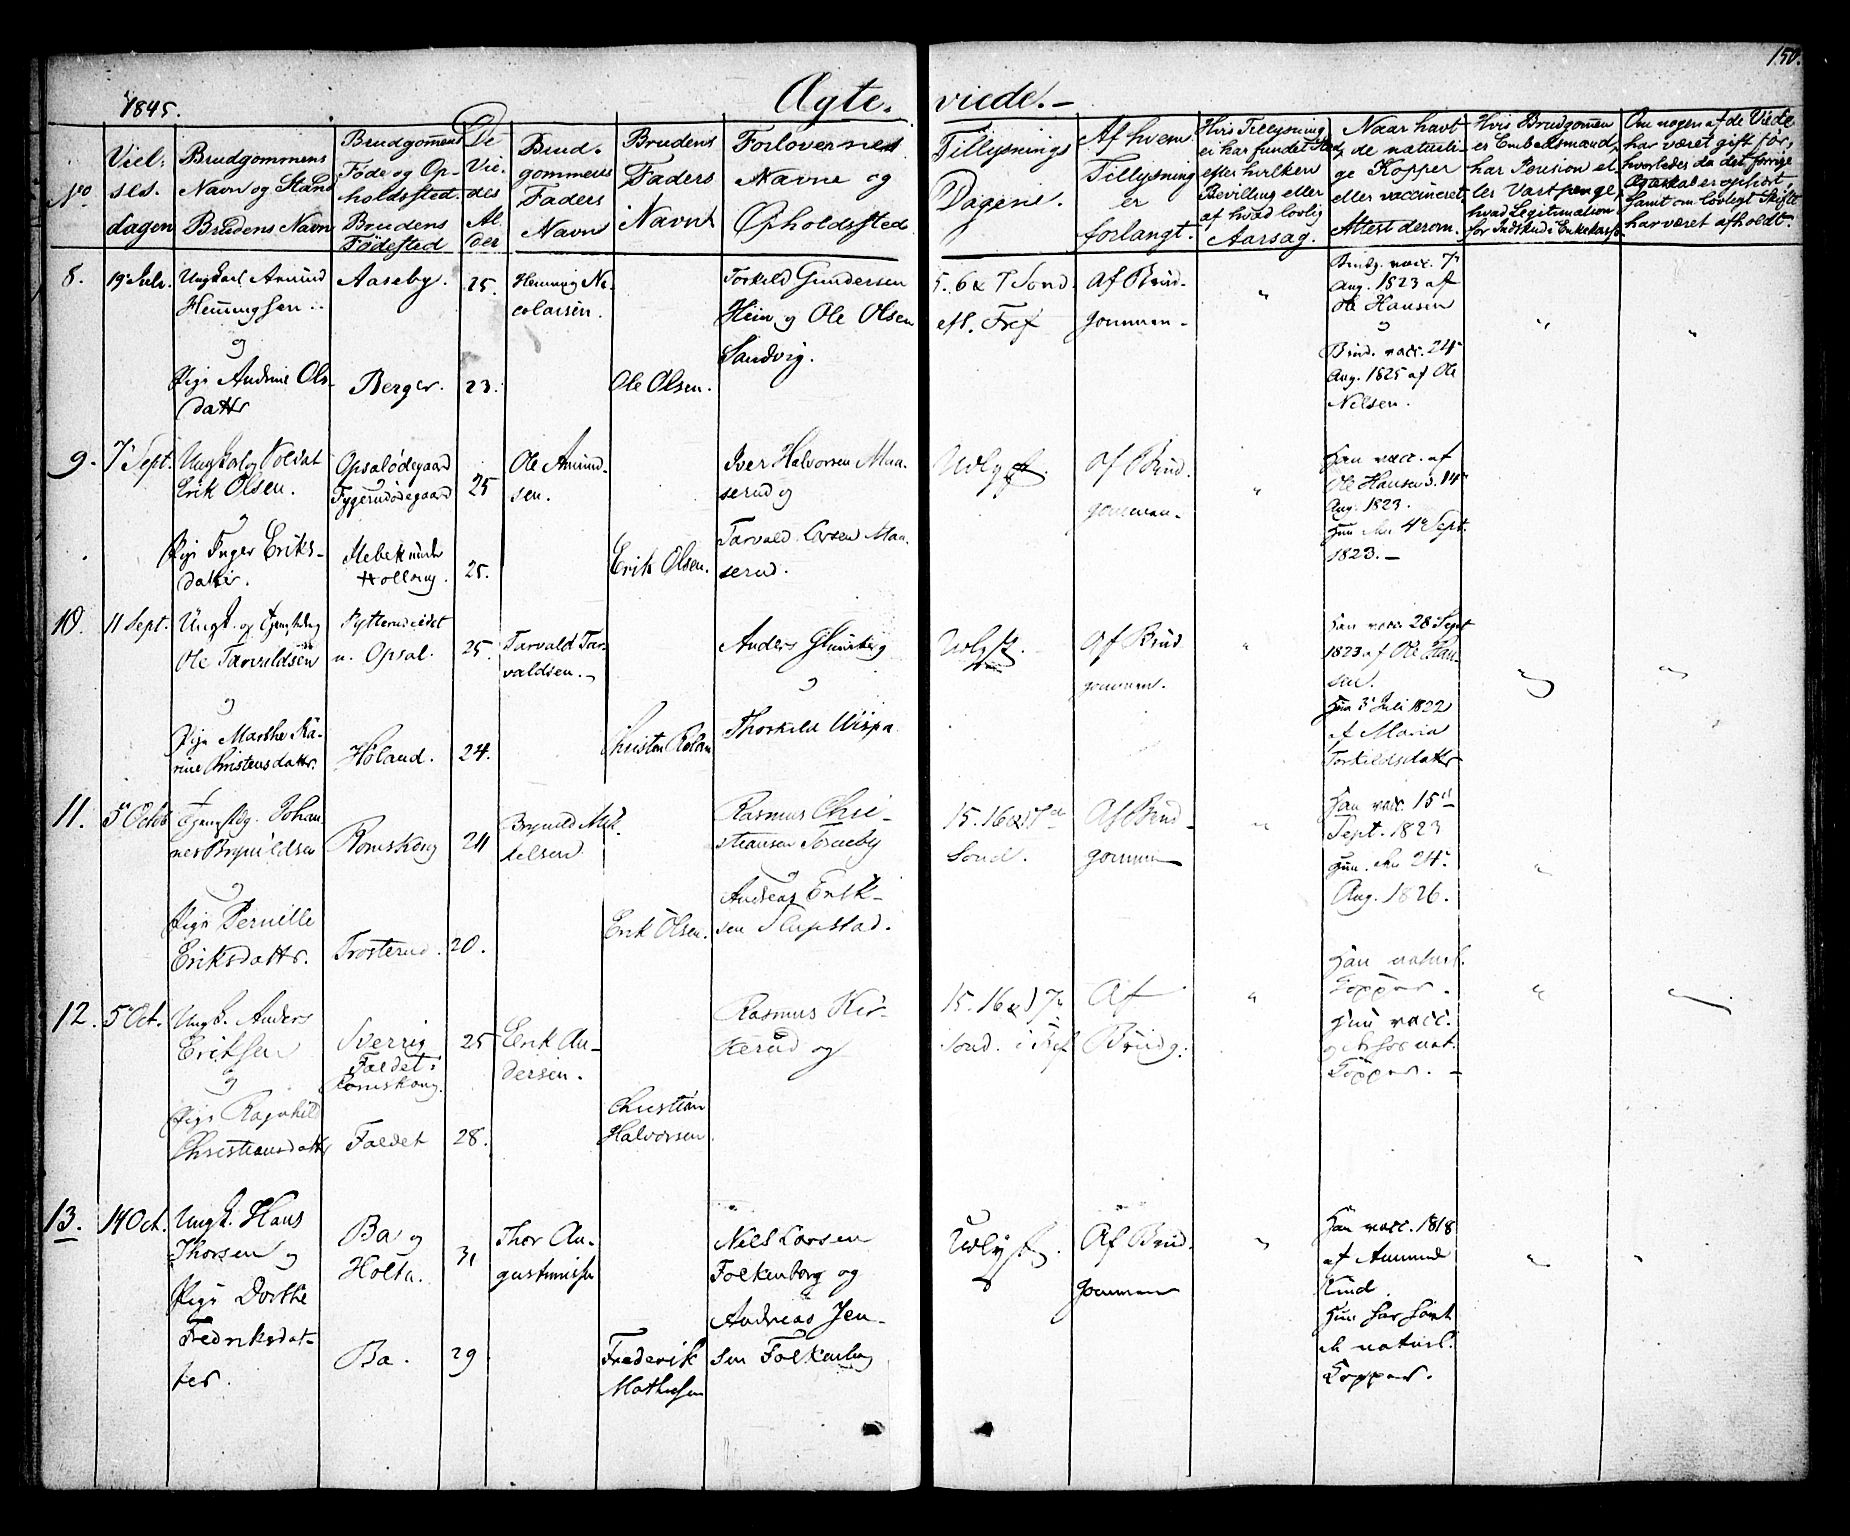 150.
1845.
Ægte-
viede.-
No
Viel-
ses-
dagen
Brudgommens
Navn og Stand
Brudens Navn
Brudgomens
Føde og Op-
holdssted.
Brudens
Fødested
De
Vie-
des
Al-
der
Brud-
gommens
Faders
Navn
Brudens
Faders
Navn
Forlovernes
Navne og
Opholdssted
Tillysnings
Dagene.
Af hvem
Tillysning
er
forlangt.
Hvis Tillysning
ei har fundet sted,
efter hvilken
Bevilling eller
af hvad lovlig
Aarsag.
Naar havt
de naturli-
ge Kopper
eller vaccineret,
Attest derom.
Hvis Brudgomen
er Embedsmand,
har Pension el-
ler Vartpenge,
hvad Legitimation
for Indskud i Enkekasse
Om nogen af de Viede
har været gift før,
hvorledes da det forrige
Ægteskab er ophørt,
samt om lovligt Skifte
har været afholdt.
8.
19 Julr.
Ungkarl Amund
Hemingsen
og
Pige Andrine Ols-
dattr
Aaseby.
Berger.
25.
23.
Heming Ni-
colaisen.
Ole Olsen.
Torkild Gundersen
Hiin og Ole Olsen
Sandvig.
5. 6 & 7 Sond.
eft. Tref
Af Brud-
gommen-
"
Brudg. vacc. 7
Aug. 1823 af
Ole Hansen
og
Brud. vacc. 24
Aug. 1825 af Ole
Nilsen.
"
"
9.
7 Sept.
Ungkarl og Soldat
Erik Olsen.
og
Pige Inger Eriks-
datter.
Opsalødegaard
Tyggerudødegaard
Holleug.
25
25.
Ole Amund-
sen.
Erik Olsen.
Iver Halvorsen Maa-
serud og
Tarvald Larsen Maa-
serud.
Af Brud-
gommen-
"
Han vacc. af
Ole Hansen d. 14
Aug. 1823.
Hun 4 Sept.
1823.-
10.
11 Sept.
Ungk. og
Ole Tarvaldsen
og
Pige Marthe Ka-
rine Christensdattr.
n. Opsal.
Høland.
25.
24.
Tarvald Tar-
valdsen.-
Anders
og
Thorkild
Af Brud
gommen.
"
Han vacc. 28 Sept
1823 af Ole Han-
sen.
Hun 3 Juli 1822
af Maria
Torkildsdattr
"
"
11.
5 Octb
Johan-
nes Brynildsen
og
Pige Pernille
Eriksdattr.
Romskoug
Trosterud.
24
20.
Brynild Mik-
kelsen
Erik Olsen.
Rasmus Chri-
stiansen Toneby
og
Andreas Erik-
sen Slupstad.
15. 16 & 17de
Sond.
Af Brud-
gommen
"
Han vacc. 15
Sept. 1823
Hun 24
Aug. 1826.
"
12.
5 Oct.
Ungk. Anders
Eriksen
og
Pige Ragnhild
Christiansdattr
Sverrig
Foldet i
Romskoug.
Foldet
25
28.
Erik An-
dersen.
Christian
Halvorsen.
Rasmus Kir-
kerud og
15. 16 & 17
Sond. i Tref
Af
Brudg:
"
Han naturl.
Copper.
Hun vacc.
og nat.
Copper.-
"
"
13.
14 Oct.
Ungk. Hans
Thorsen og
Pige Dorthe
Fredriksdat-
ter.
Ba og
Holta.
Ba.
31
29
Thor Au-
gustinusen
Frederik
Mathisen
Nils Larsen
Folkenborg og
Andreas Jen-
sen Folkenborg
Af Brud-
gommen
"
Han vacc. 1818
af Amund
Rud.
Hun har havt
de naturl.
Copper.
"
"